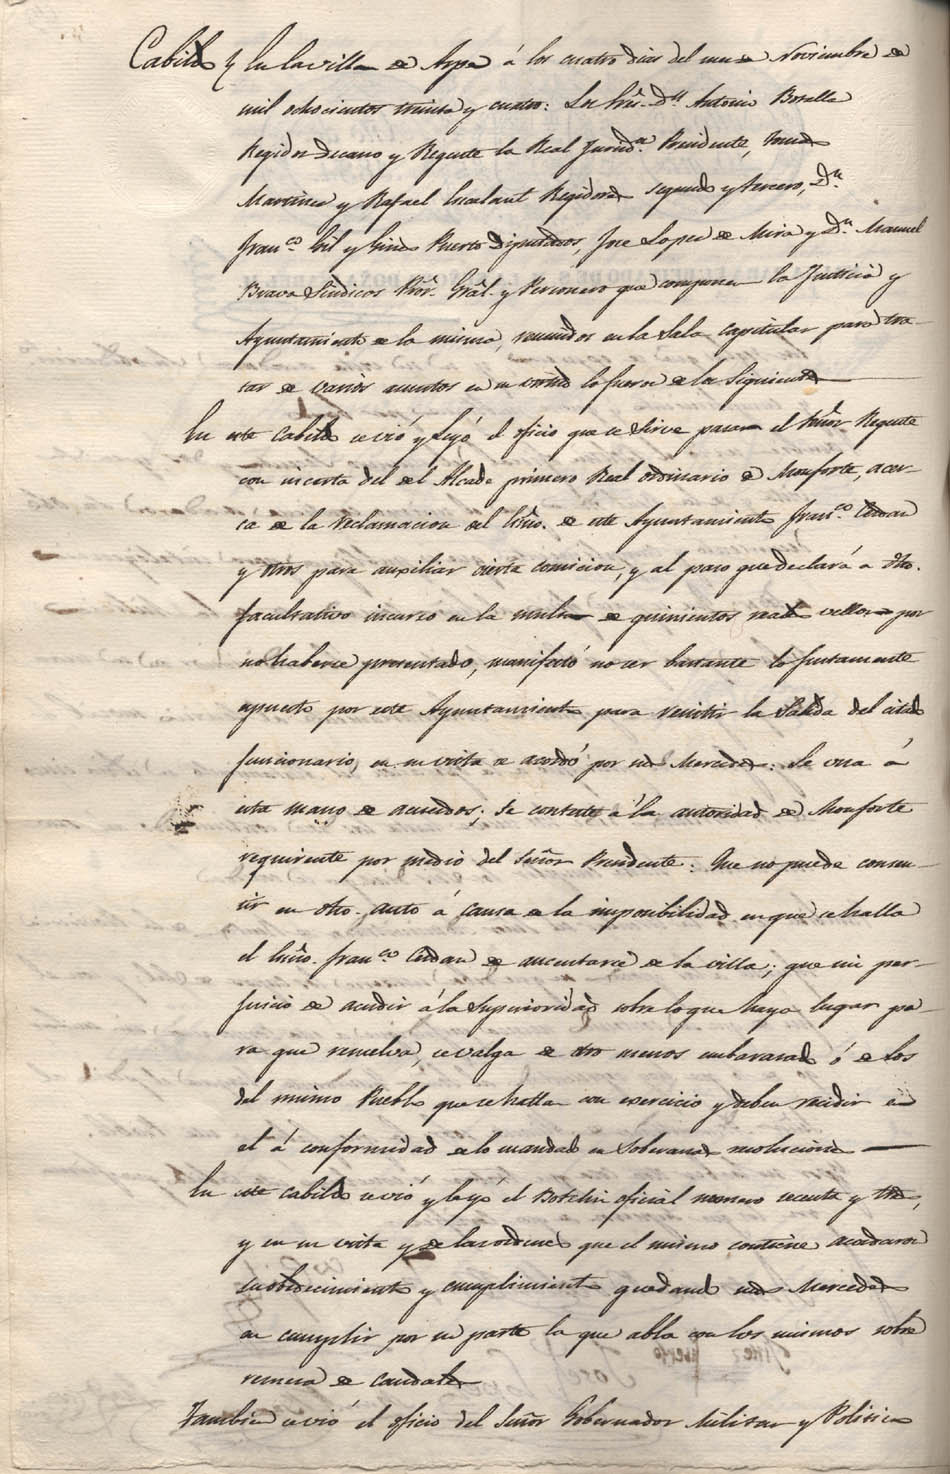 Cabildo y En la villa de Aspe á los cuatro dias del mes de Noviembre de
mil ochocientos treinta y cuatro: Los Sres. Dn. Antonio Botella
Regidor Decano y Regente la Real Jurisdn. Presidente, Tomas
Martinez y Rafael Escolant Regidores segundo y tercero, Dn.
Franco. Gil y Gines Puerto Diputados, Jose Lopez de Mira y Dn. Manuel
Bravo Sindicos Pror. Gral. y Personero que componen la Justicia y
Ayuntamiento de la misma, reunidos en la Sala capitular para tra-
tar de varios asuntos en su virtud lo fueron de los siguientes
En este Cabildo se vió y Leyó el oficio que se sirve pasar el Señor Regente
con incerta del del Alcade primero Real ordinario de Monforte, acer-
ca de la reclamacion del Ciruo. de este Ayuntamiento Franco. Cerdan
y otros para auxiliar cierta comicion, y al paso que declará a dho.
facultativo incurso en la multa de quinientos reales vellon por
no haberce presentado, manifestó no ser bastante lo justamente
espuesto por este Ayuntamiento para resistir la Salida del citado
funcionario, en su vista se acordó por sus Mercedes: Se una á
esta mano de acuerdos; Se conteste á la autoridad de Monforte
requirente por medio del Señor Presidente: Que no puede consen-
tir en dho. auto á causa de la imposibilidad en que se halla
el Ciruo. Franco. Cerdan de aucentarce de la villa; que sin per-
juicio de acudir á la Superioridad sobre lo que haya lugar pa-
ra que resuelva, se valga de otro menos embarasado ó de los
del mismo Pueblo que se hallan con exercicio y deben recidir en
el á conformidad de lo mandado en Soberanas resoluciones
En este cabildo se vió y leyó el Boletin oficial numero secenta y tres,
y en su vista y de las ordenes que el mismo contiene acordaron
su obedecimiento y cumplimiento quedando sus Mercedes
en cumplir por su parte la que abla con los mismos sobre
remesa de caudales
Tambien se vió el oficio del Señor Gobernador Militar y Politico